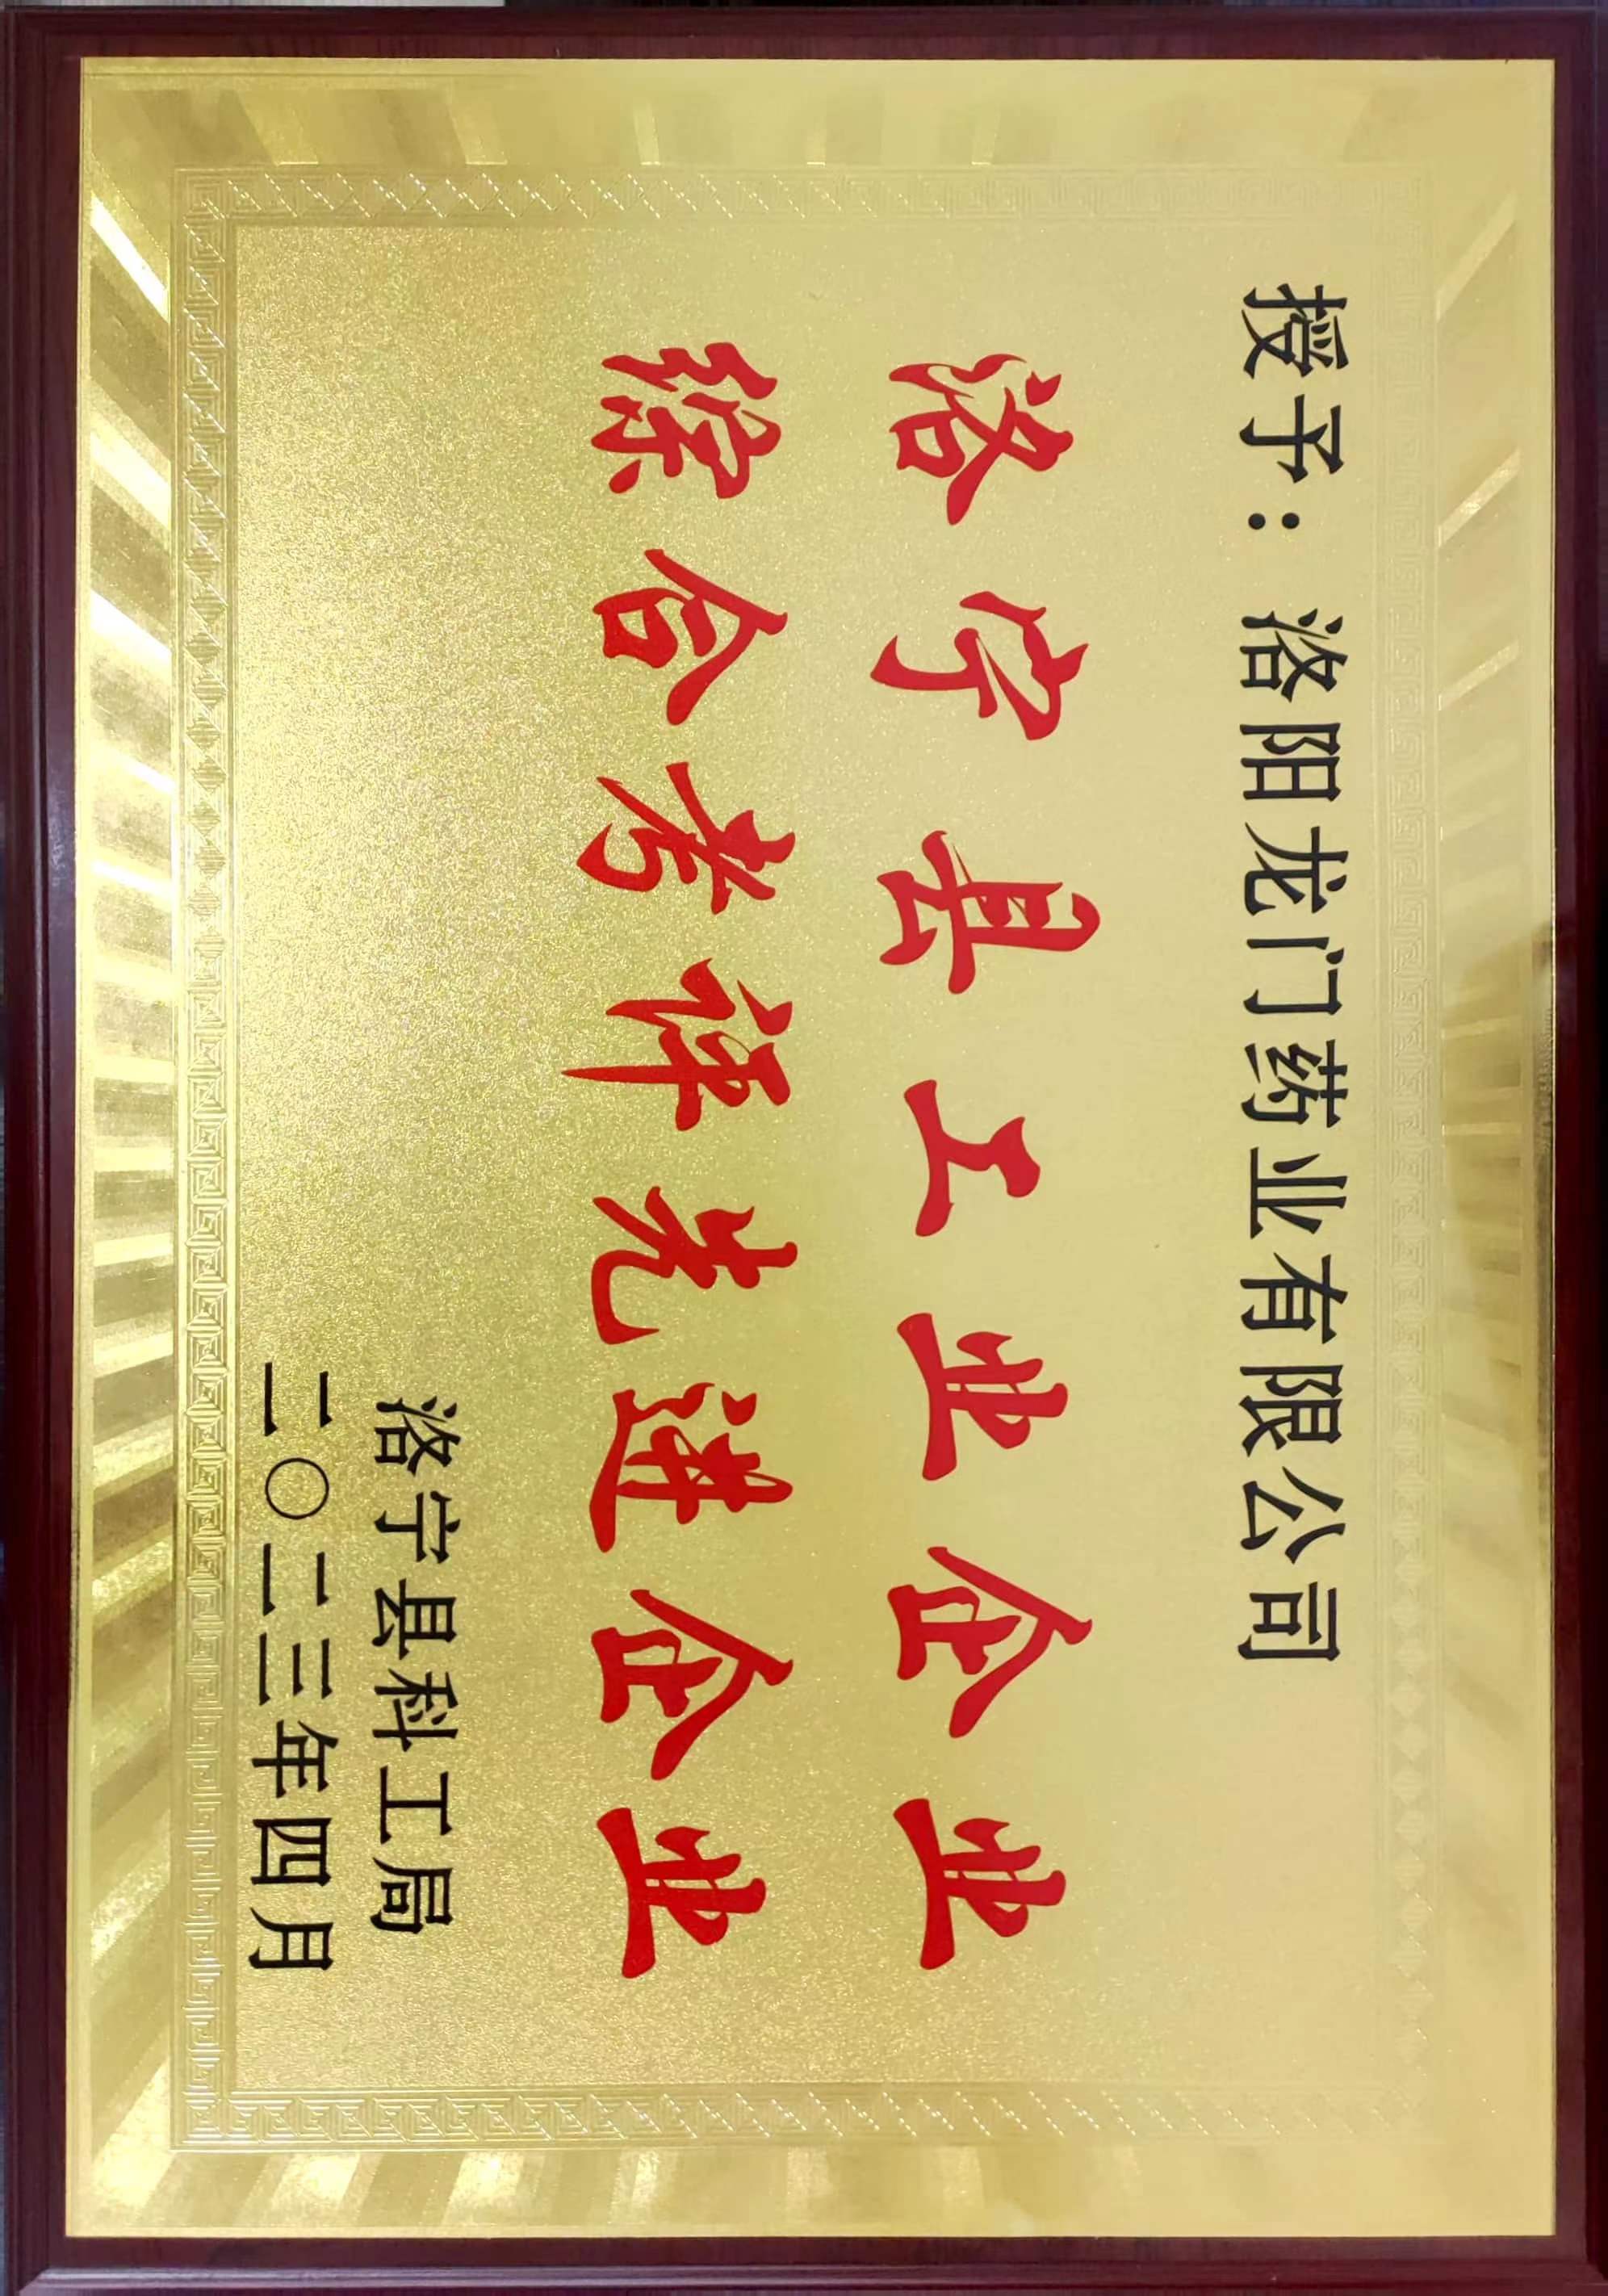 授予：洛阳龙门药业有限公司
洛宁县工业企业
综合考评先进企业
洛宁县科工局
二〇二三年四月